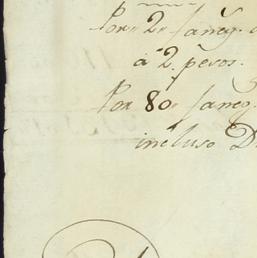 Por 2 faneg.
á 2. pesos.
Por 80 faneg.
incluso